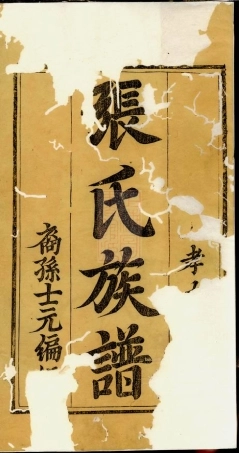 孝
張氏族譜
裔孫士元編